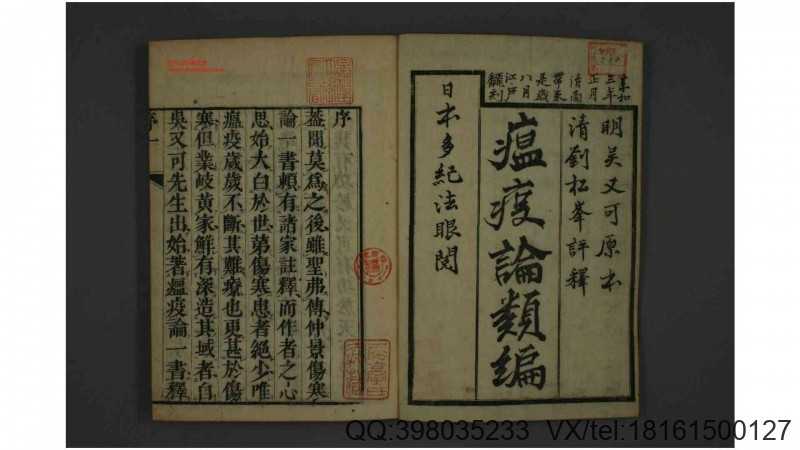 享和
三年
正月
清商
帶來
是歲
八月
江戶
翻刻
明吳又可原本
清劉松峯評釋
瘟疫論類編
日本多紀法眼閱
序
蓋聞莫爲之後雖聖弗傳仲景傷寒
論一書賴有諸家註釋而作者之心
思始大白於世第傷寒患者絕少唯
瘟疫歲歲不斷其難療也更甚於傷
寒但業岐黃家鮮有深造其域者自
吳又可先生出始著瘟疫論一書釋
序一
QQ:398035233 VX/tel:18161500127